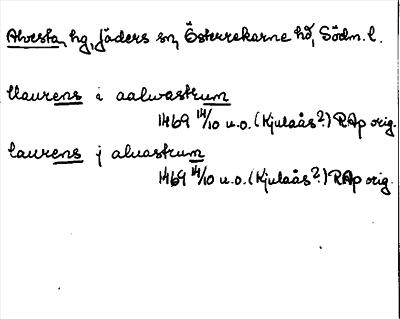 Alvesta, hg, Jäders sn, Österrekarne hd, Södm. l.
llaurens i aalwastrum
1469 14/10 u.o. (Kjulaås?) RAp orig.
laurens j aluastrum
1469 14/10 u.o. (Kjulaås?) RAp orig.